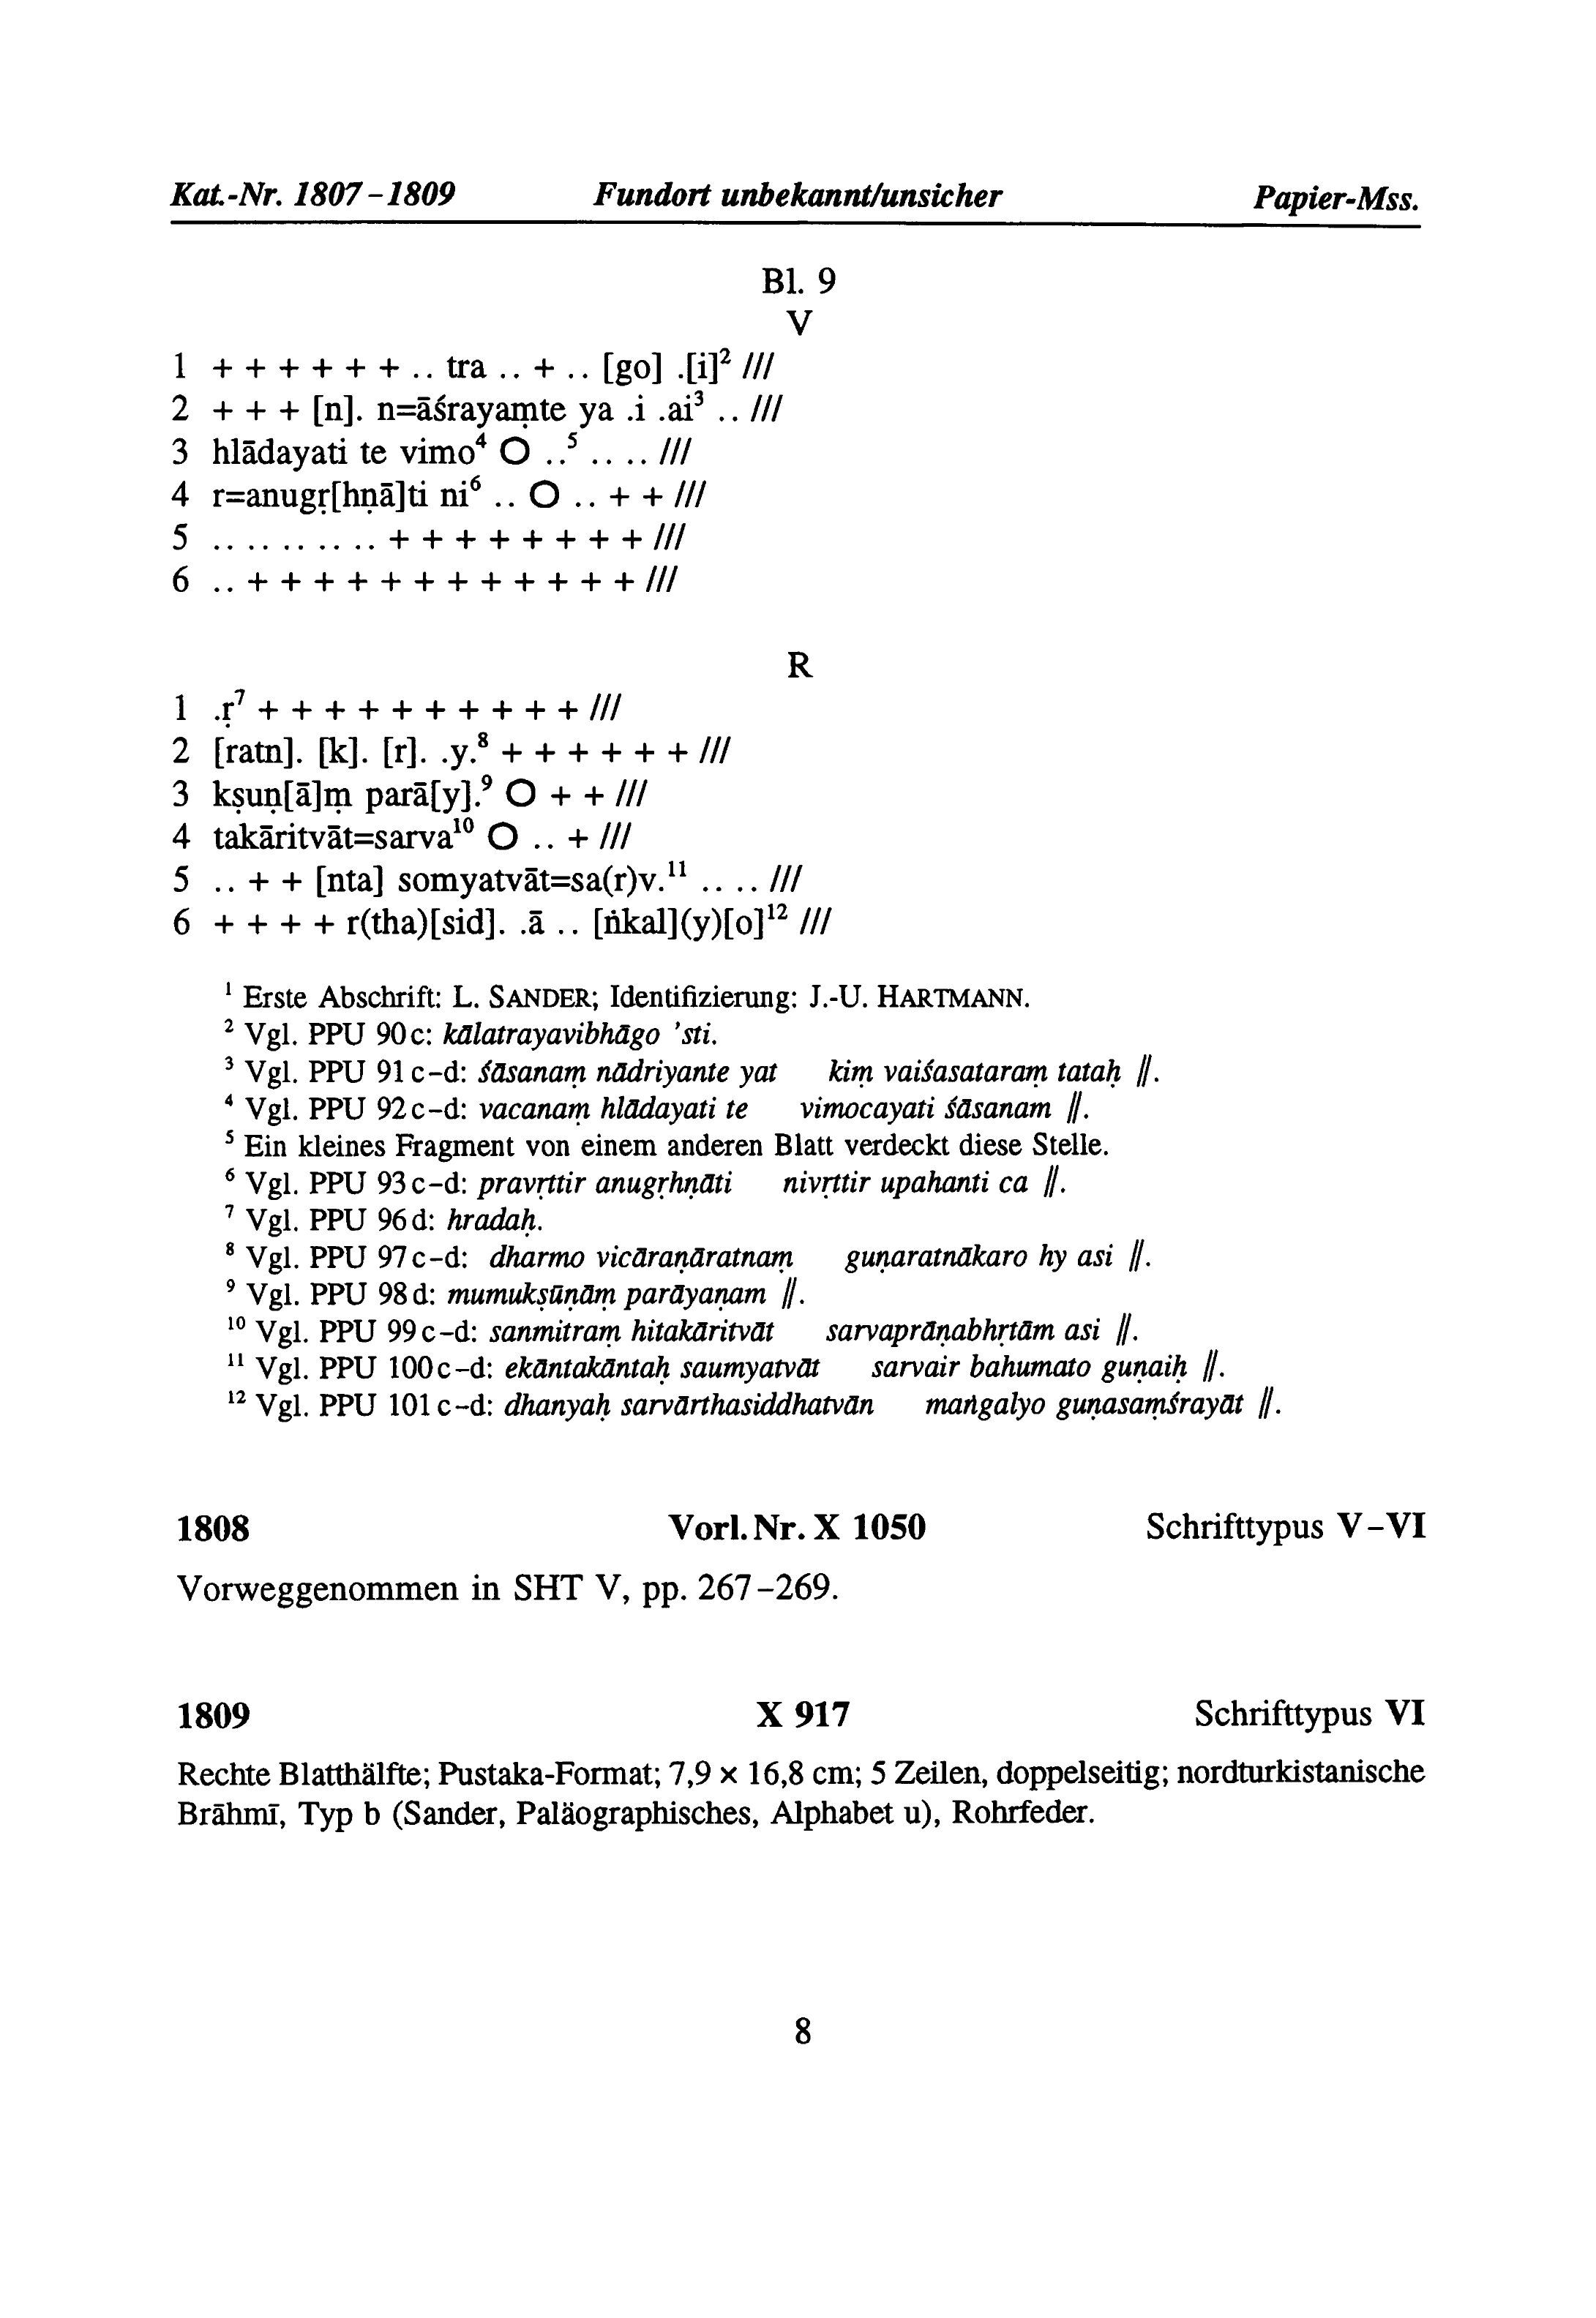 Kat.-Nr. 1807–1809 Fundort unbekannt/unsicher Papier-Mss.
Bl. 9
V
1 + + + + + + .. tra .. + .. [go] .[i]² ///
2 + + + [n]. n=āśrayaṃte ya .i .ai³ .. ///
3 hlādayati te vimo⁴ O ..⁵ .. .. ///
4 r=anugṛ[hṇā]ti ni⁶ .. O .. + + ///
5 .. .. .. .. .. + + + + + + + + ///
6 .. + + + + + + + + + + + + ///
R
1 .ṛ⁷ + + + + + + + + + + ///
2 [ratn]. [k]. [r]. .y.⁸ + + + + + + ///
3 kṣuṇ[ā]ṃ parā[y].⁹ O + + ///
4 takāritvāt=sarva¹⁰ O .. + ///
5 .. + + [nta] somyatvāt=sa(r)v.¹¹ .. .. ///
6 + + + + r(tha)[sid]. .ā .. [ṅkal](y)[o]¹² ///
¹ Erste Abschrift: L. SANDER; Identifizierung: J.-U. HARTMANN.
² Vgl. PPU 90c: kālatrayavibhāgo ’sti.
³ Vgl. PPU 91c–d: śāsanaṃ nādriyante yat kiṃ vaiśasataraṃ tataḥ //.
⁴ Vgl. PPU 92c–d: vacanaṃ hlādayati te vimocayati śāsanam //.
⁵ Ein kleines Fragment von einem anderen Blatt verdeckt diese Stelle.
⁶ Vgl. PPU 93c–d: pravṛttir anugṛhṇāti nivṛttir upahanti ca //.
⁷ Vgl. PPU 96d: hradaḥ.
⁸ Vgl. PPU 97c–d: dharmo vicāraṇāratnaṃ guṇaratnākaro hy asi //.
⁹ Vgl. PPU 98d: mumukṣūṇāṃ parāyaṇam //.
¹⁰ Vgl. PPU 99c–d: sanmitraṃ hitakāritvāt sarvaprāṇabhṛtām asi //.
¹¹ Vgl. PPU 100c–d: ekāntakāntaḥ saumyatvāt sarvair bahumato guṇaiḥ //.
¹² Vgl. PPU 101c–d: dhanyaḥ sarvārthasiddhatvān maṅgalyo guṇasaṃśrayāt //.
1808 Vorl. Nr. X 1050 Schrifttypus V–VI
Vorweggenommen in SHT V, pp. 267–269.
1809 X 917 Schrifttypus VI
Rechte Blatthälfte; Pustaka-Format; 7,9 x 16,8 cm; 5 Zeilen, doppelseitig; nordturkistanische
Brāhmī, Typ b (Sander, Paläographisches, Alphabet u), Rohrfeder.
8